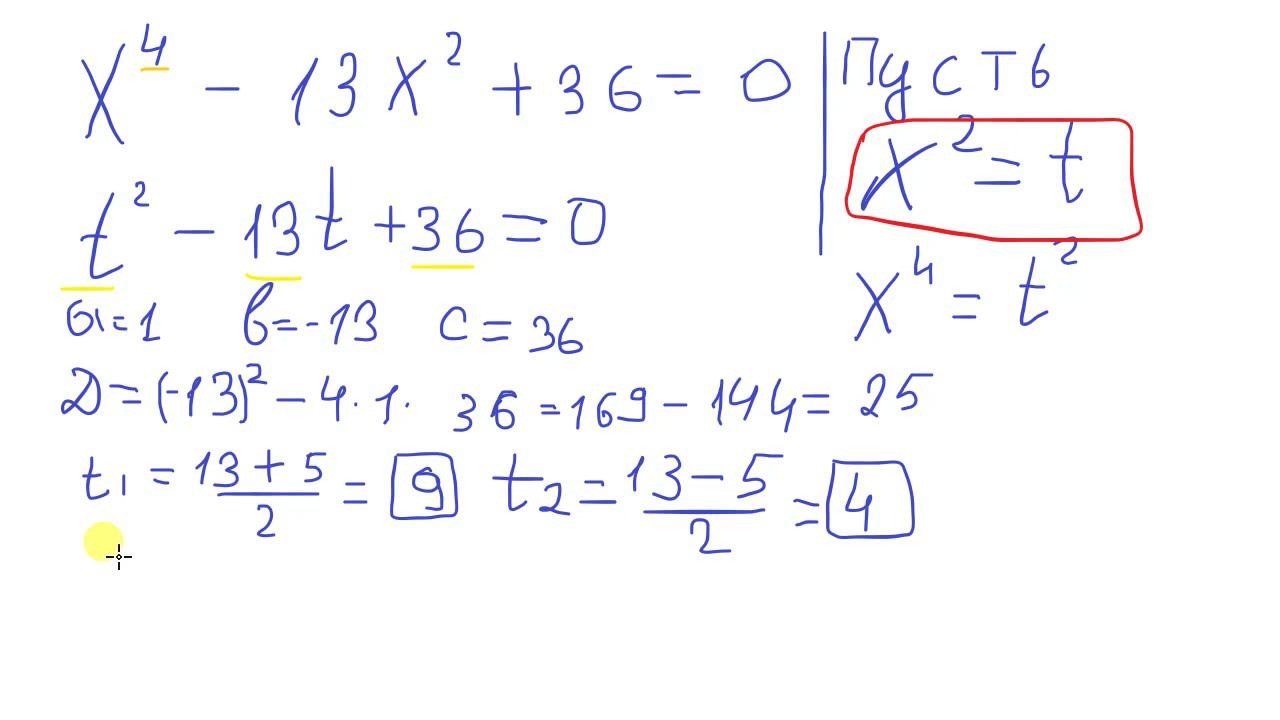 x⁴ - 13x² + 36 = 0
Пусть
x² = t
x⁴ = t²
t² - 13t + 36 = 0
a = 1 в = -13 c = 36
D = (-13)² - 4 · 1 · 36 = 169 - 144 = 25
t₁ = (13 + 5)/2 = 9 t₂ = (13 - 5)/2 = 4